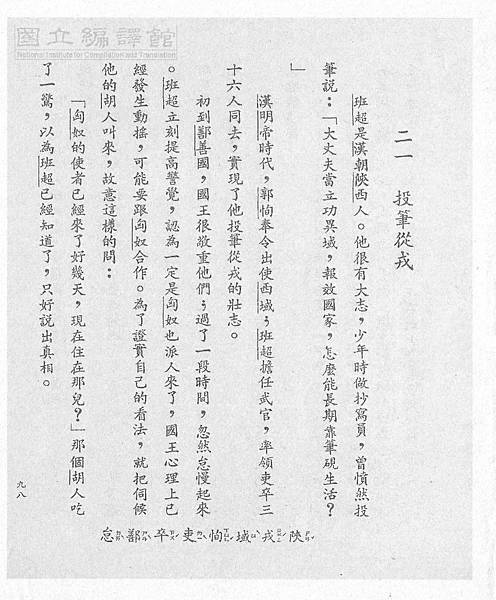 國立編譯館
National Institute for Compilation and Translation
二一　投筆從戎
班超是漢朝陝西人。他很有大志，少年時做抄寫員，曾憤然投
筆說：「大丈夫當立功異域，報效國家，怎麼能長期靠筆硯生活？
」
漢明帝時代，郭恂奉令出使西域；班超擔任武官，率領吏卒三
十六人同去，實現了他投筆從戎的壯志。
初到鄯善國，國王很敬重他們；過了一段時間，忽然怠慢起來
。班超立刻提高警覺，認為一定是匈奴也派人來了，國王心理上已
經發生動搖，可能要跟匈奴合作。為了證實自己的看法，就把伺候
他的胡人叫來，故意這樣的問：
「匈奴的使者已經來了好幾天，現在住在那兒？」那個胡人吃
了一驚，以為班超已經知道了，只好說出真相。
陝 戎 域 恂 吏 卒 鄯 怠
九八